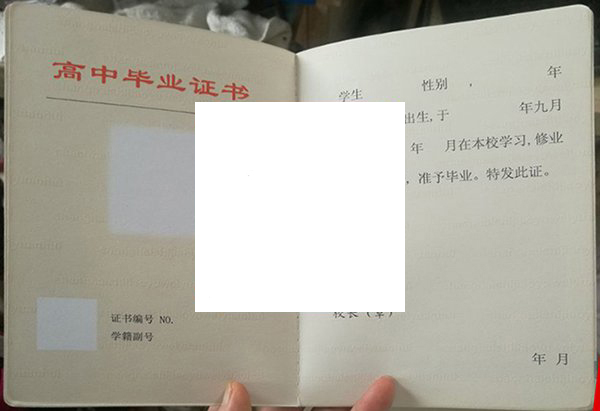 高中毕业证书
证书编号 NO.
学籍副号
学生 性别 , 年
出生,于 年九月
年 月在本校学习,修业
,准予毕业。特发此证。
校长(章)
年 月